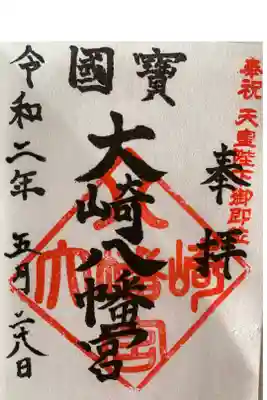 奉祝 天皇陛下御即位
奉拝
國寶
大崎八幡宮
令和二年 五月 二十八日